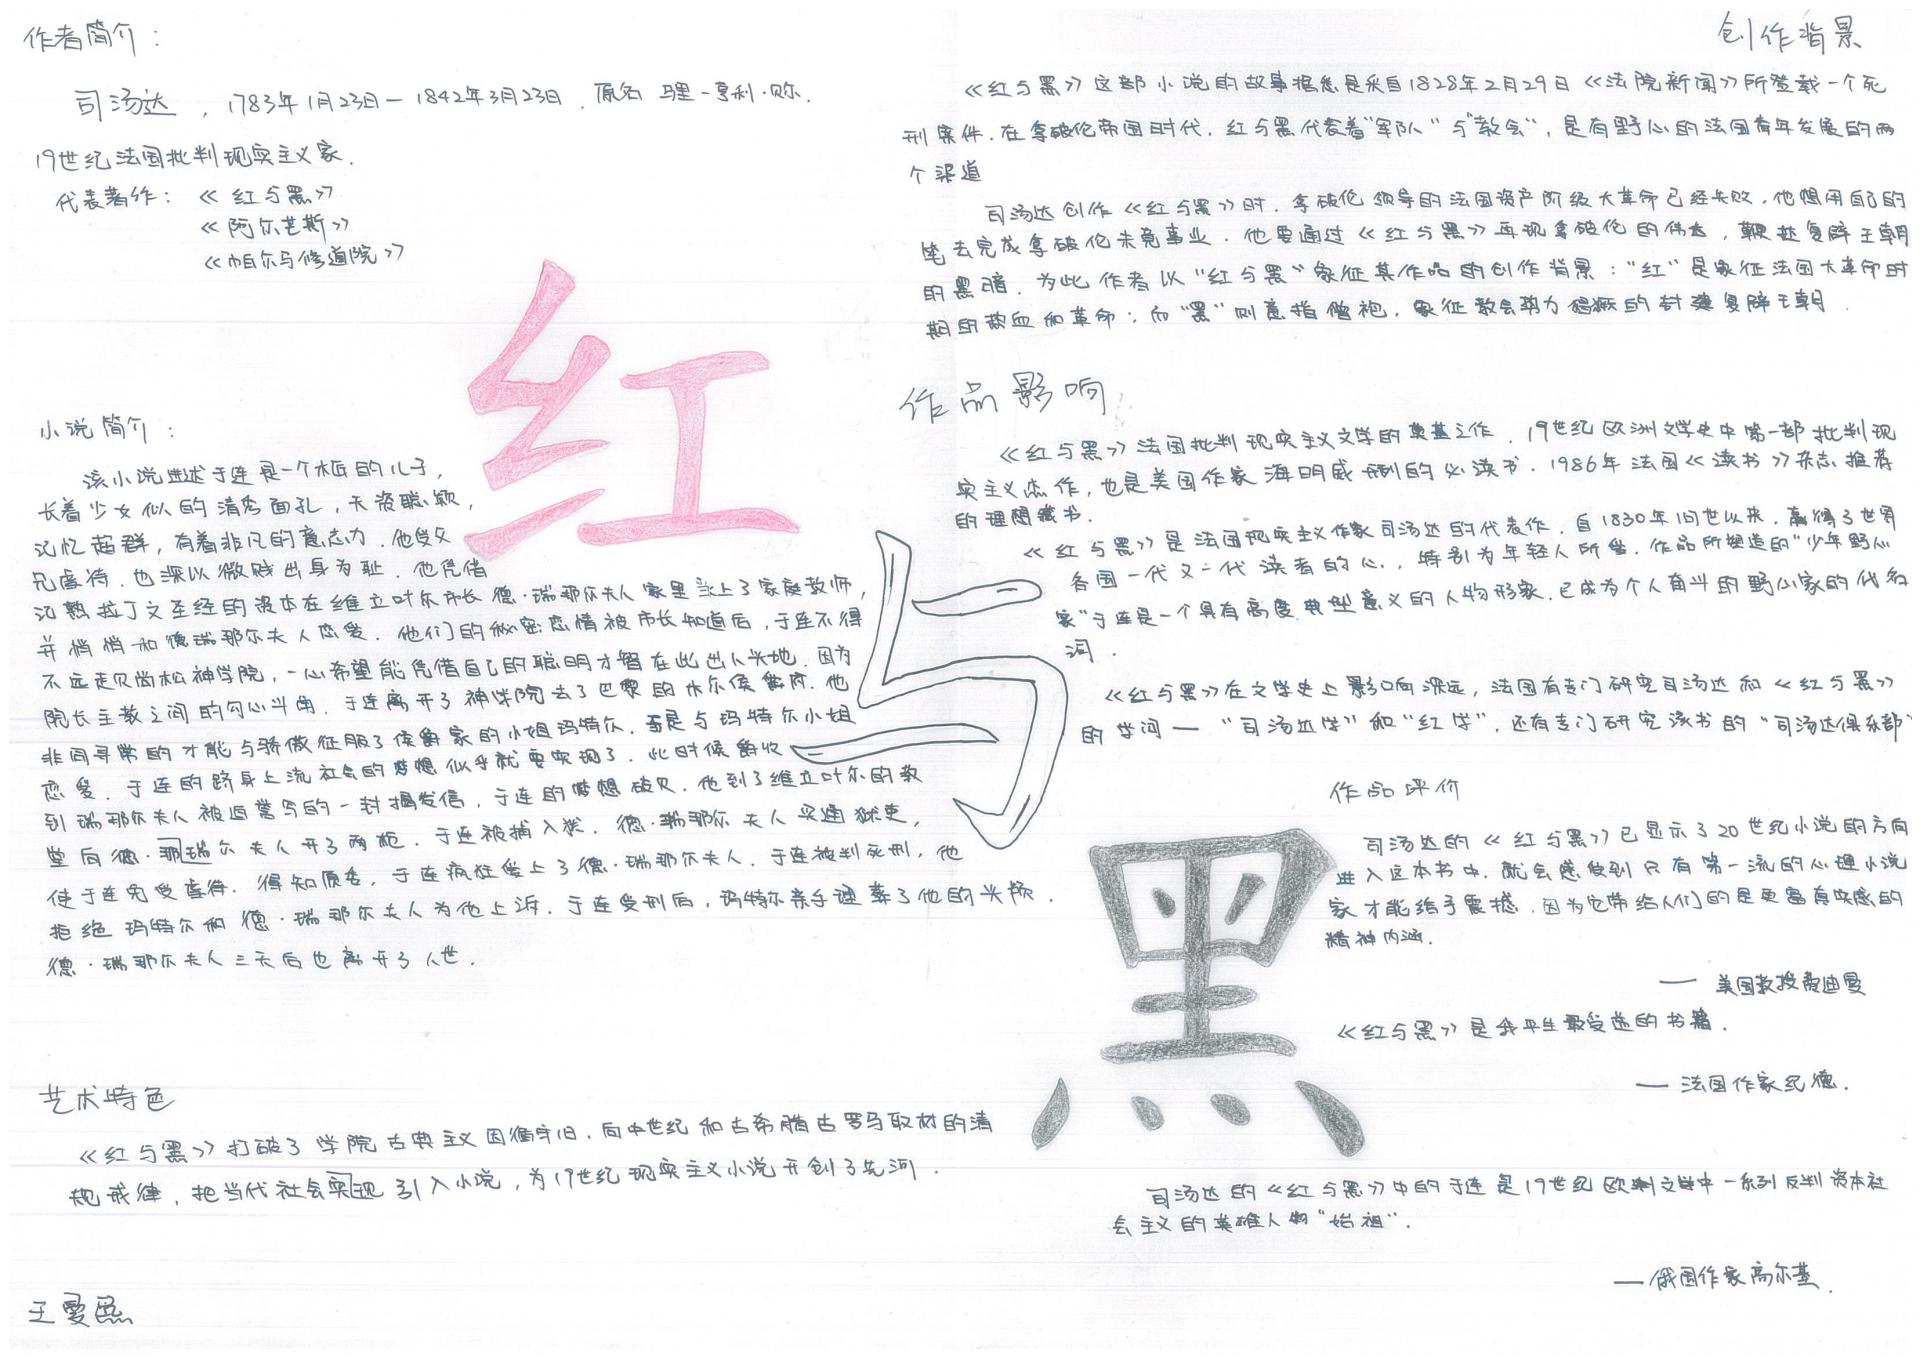 作者简介：
司汤达，1783年1月23日—1842年3月23日．原名 马里-亨利·贝尔．
19世纪法国批判现实主义家．
代表著作：《红与黑》
《阿尔芒斯》
《帕尔马修道院》
小说简介：
该小说讲述于连是一个木匠的儿子，
长着少女似的清秀面孔，天资聪颖，
记忆超群，有着非凡的意志力．他受父
兄虐待．也深以微贱出身为耻．他凭借
记熟拉丁文圣经的资本在维立叶尔市长德·瑞那尔夫人家里当上了家庭教师，
并悄悄和德瑞那尔夫人恋爱．他们的秘密恋情被市长知道后，于连不得
不远走贝尚松神学院，一心希望能凭借自己的聪明才智在此出人头地．因为
院长主教之间的勾心斗角．于连离开了神学院去了巴黎的木尔侯爵府．他
非同寻常的才能与骄傲征服了侯爵家的小姐玛特尔．于是与玛特尔小姐
恋爱．于连的跻身上流社会的梦想似乎就要实现了．此时侯爵收
到瑞那尔夫人被迫写的一封揭发信，于连的梦想破灭．他到了维立叶尔的教
堂向德·那瑞尔夫人开了两枪．于连被捕入狱．德·瑞那尔夫人买通狱吏，
使于连免受虐待．得知原委，于连疯狂爱上了德·瑞那尔夫人．于连被判死刑，他
拒绝玛特尔和德·瑞那尔夫人为他上诉．于连受刑后，玛特尔亲手埋葬了他的头颅．
德·瑞那尔夫人三天后也离开了人世．
艺术特色
《红与黑》打破了学院古典主义因循守旧．向中世纪和古希腊古罗马取材的清
规戒律，把当代社会实现引入小说，为19世纪现实主义小说开创了先河．
王曼
红
与
黑
创作背景
《红与黑》这部小说的故事据悉是采自1828年2月29日《法院新闻》所登载一个死
刑案件．在拿破伦帝国时代．红与黑代表着"军队"与"教会"，是有野心的法国青年发展的两
个渠道
司汤达创作《红与黑》时．拿破伦领导的法国资产阶级大革命已经失败．他想用自己的
笔去完成拿破伦未竟事业．他要通过《红与黑》再现拿破伦的伟大，鞭挞复辟王朝
的黑暗．为此作者以"红与黑"象征其作品的创作背景："红"是象征法国大革命时
期的热血和革命；而"黑"则意指僧袍，象征教会势力猖獗的封建复辟王朝．
作品影响
《红与黑》法国批判现实主义文学的奠基之作．19世纪欧洲文学史中第一部批判现
实主义杰作，也是美国作家海明威开列的必读书．1986年法国《读书》杂志推荐
的理想藏书．
《红与黑》是法国现实主义作家司汤达的代表作．自1830年问世以来．赢得了世界
各国一代又一代读者的心．，特别为年轻人所爱．作品所塑造的"少年野心
家"于连是一个具有高度典型意义的人物形象．已成为个人奋斗的野心家的代名
词．
《红与黑》在文学史上影响深远，法国有专门研究司汤达和《红与黑》
的学问—"司汤达学"和"红学"，还有专门研究该书的"司汤达俱乐部"
作品评价
司汤达的《红与黑》已显示了20世纪小说的方向
进入这本书中．就会感受到只有第一流的心理小说
家才能给予震撼．因为它带给人们的是更富真实感的
精神内涵．
—美国教授费迪曼
《红与黑》是我平生最受益的书籍．
—法国作家纪德．
司汤达的《红与黑》中的于连是19世纪欧洲文学中一系列反判资本社
会主义的英雄人物"始祖"．
—俄国作家高尔基．